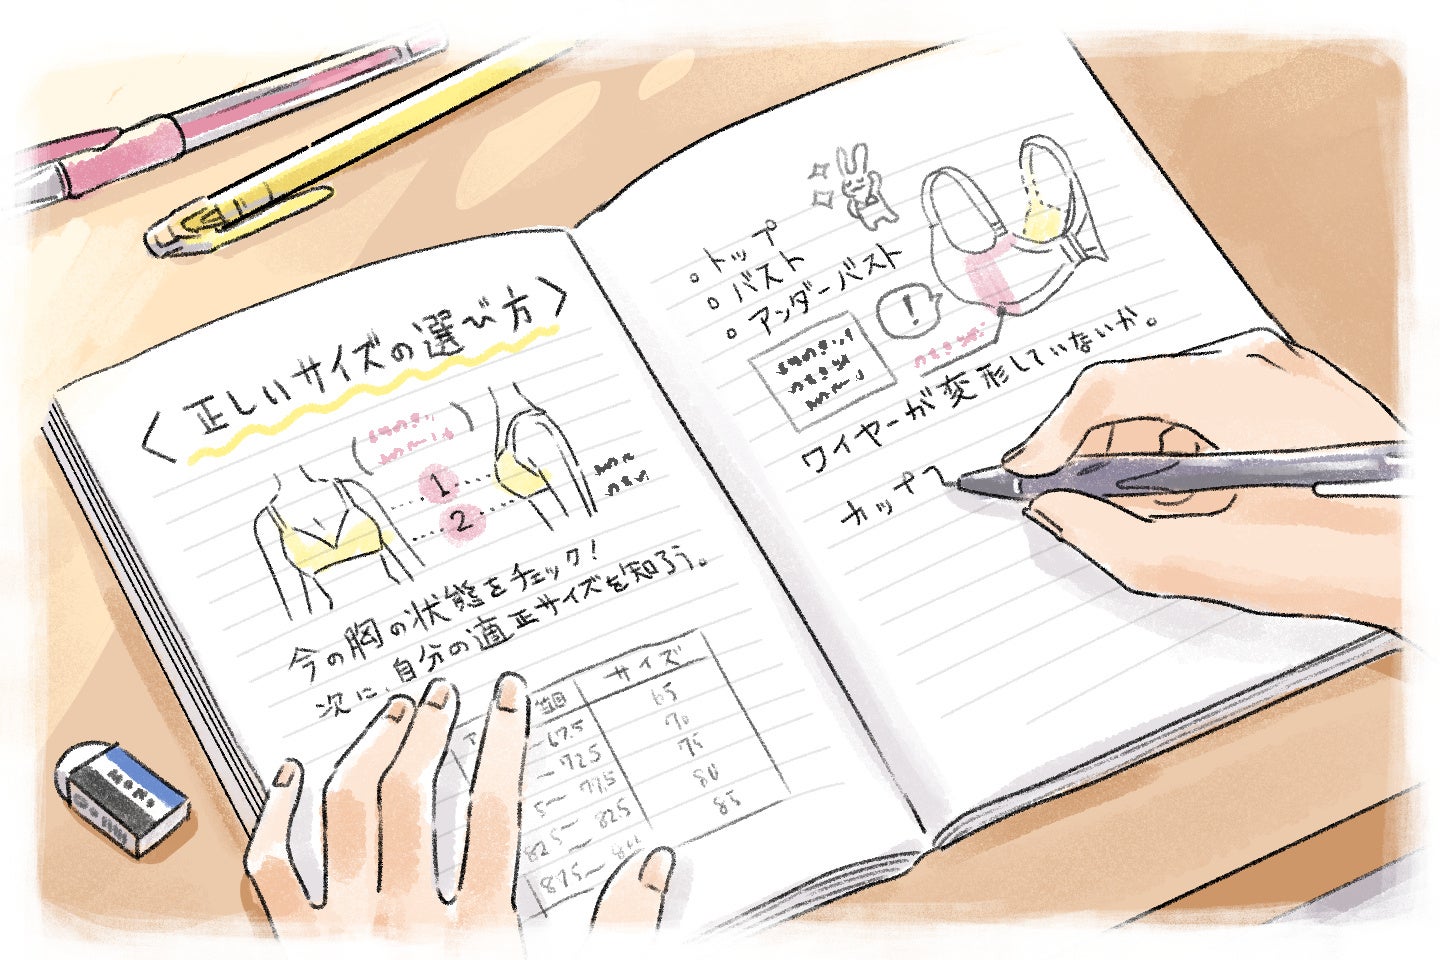 〈正しいサイズの選び方〉
1
2
今の胸の状態をチェック!
次に、自分の適正サイズを知ろう。
サイズ
~67.5 65
~72.5 70
~77.5 75
82.5~ 82.5 80
87.5~ 85
。トップ
。バスト
。アンダーバスト
!
ワイヤーが変形していないか。
カップフ